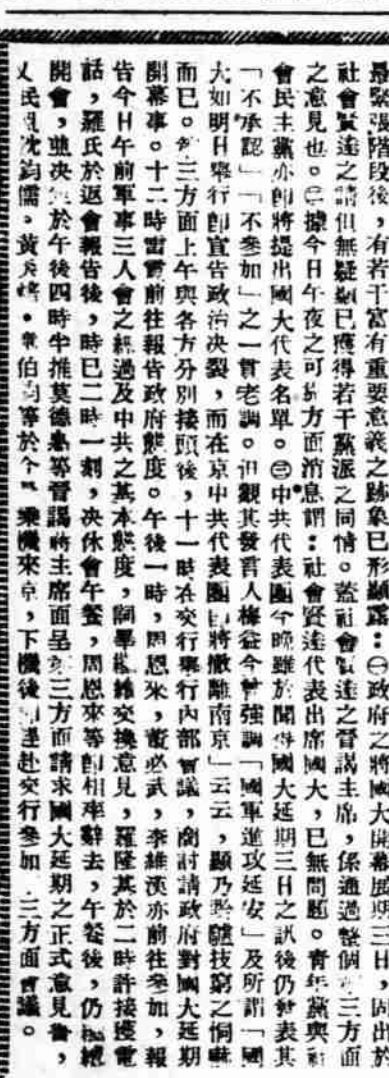 最緊張階段後，有若干富有重要意義之跡象已形顯露：㊀政府之將國大開幕展期三日，固出於
社會賢達之請但無疑義已獲得若干黨派之同情。蓋社會賢達之晉謁主席，係通過整個三方面
之意見也。㊁據今日午夜之可靠方面消息謂：社會賢達代表出席國大，已無問題。青年黨與
會民主黨亦卽將提出國大代表名單。㊂中共代表團今晚雖於聞得國大延期三日之訊後仍曾表其
「不承認」「不參加」之一貫老調。但觀其發言人梅益今曾強調「國軍進攻延安」及所謂「國
大如明日舉行卽宣告政治决裂，而在京中共代表團將撤離南京」云云，顯乃黔驢技窮之恫嚇
而已。三方面上午與各方分別接頭後，十一時在交行舉行內部會議，商討請政府對國大延期
開幕事。十二時雷震前往報告政府態度。午後一時，周恩來，董必武，李維漢亦前往參加，報
告今日午前軍事三人會之經過及中共之基本態度，詞畢繼續交換意見，羅隆基於二時許接獲電
話，羅氏於返會報告後，時巳二時一刻，决休會午餐，周恩來等卽相率辭去，午餐後，仍繼續
開會，並决於午後四時半推莫德惠等晉謁蔣主席面呈三方面請求國大延期之正式意見書，
又民盟沈鈞儒。黃炎培。章伯鈞等於今乘機來京，下機後逕赴交行參加三方面會議。